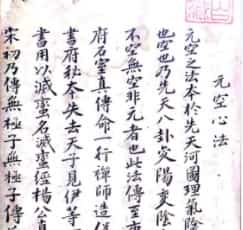 元空心法
元空之法本於先天河圖理氣陰
也空也乃先天八卦爻陽變陰
不空無空非元者也此法傳至
府石室真傳命一行禪師造
書府秘本失去天子見伊等
書用以滅蛮名滅蛮經楊公
宋初乃傳無極子無極子傳